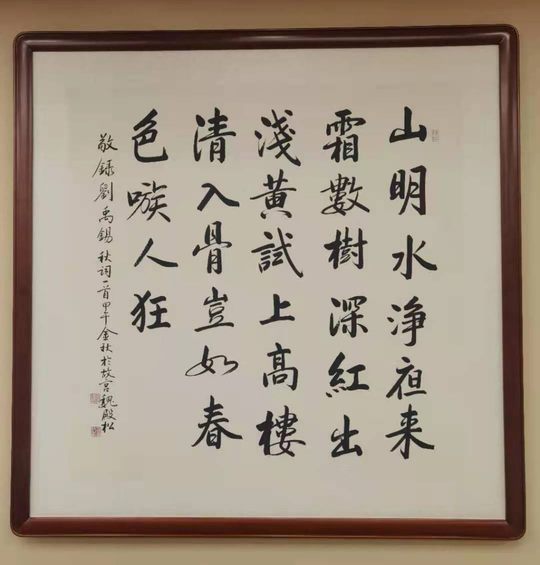 山明水净夜来
霜數樹深紅出
淺黄試上高樓
清入骨豈如春
色嗾人狂
敬録劉禹錫秋词一首甲午金秋於故宫魏殿松